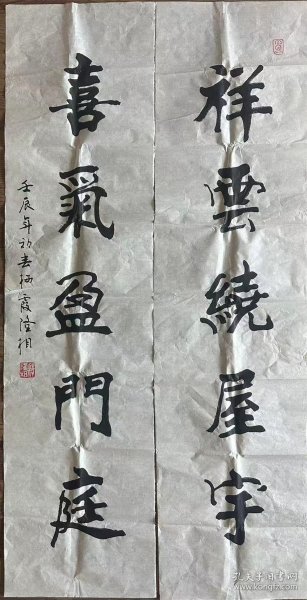 祥雲繞屋宇
喜氣盈門庭
壬辰年初春栖霞隆相
孔夫子旧书网